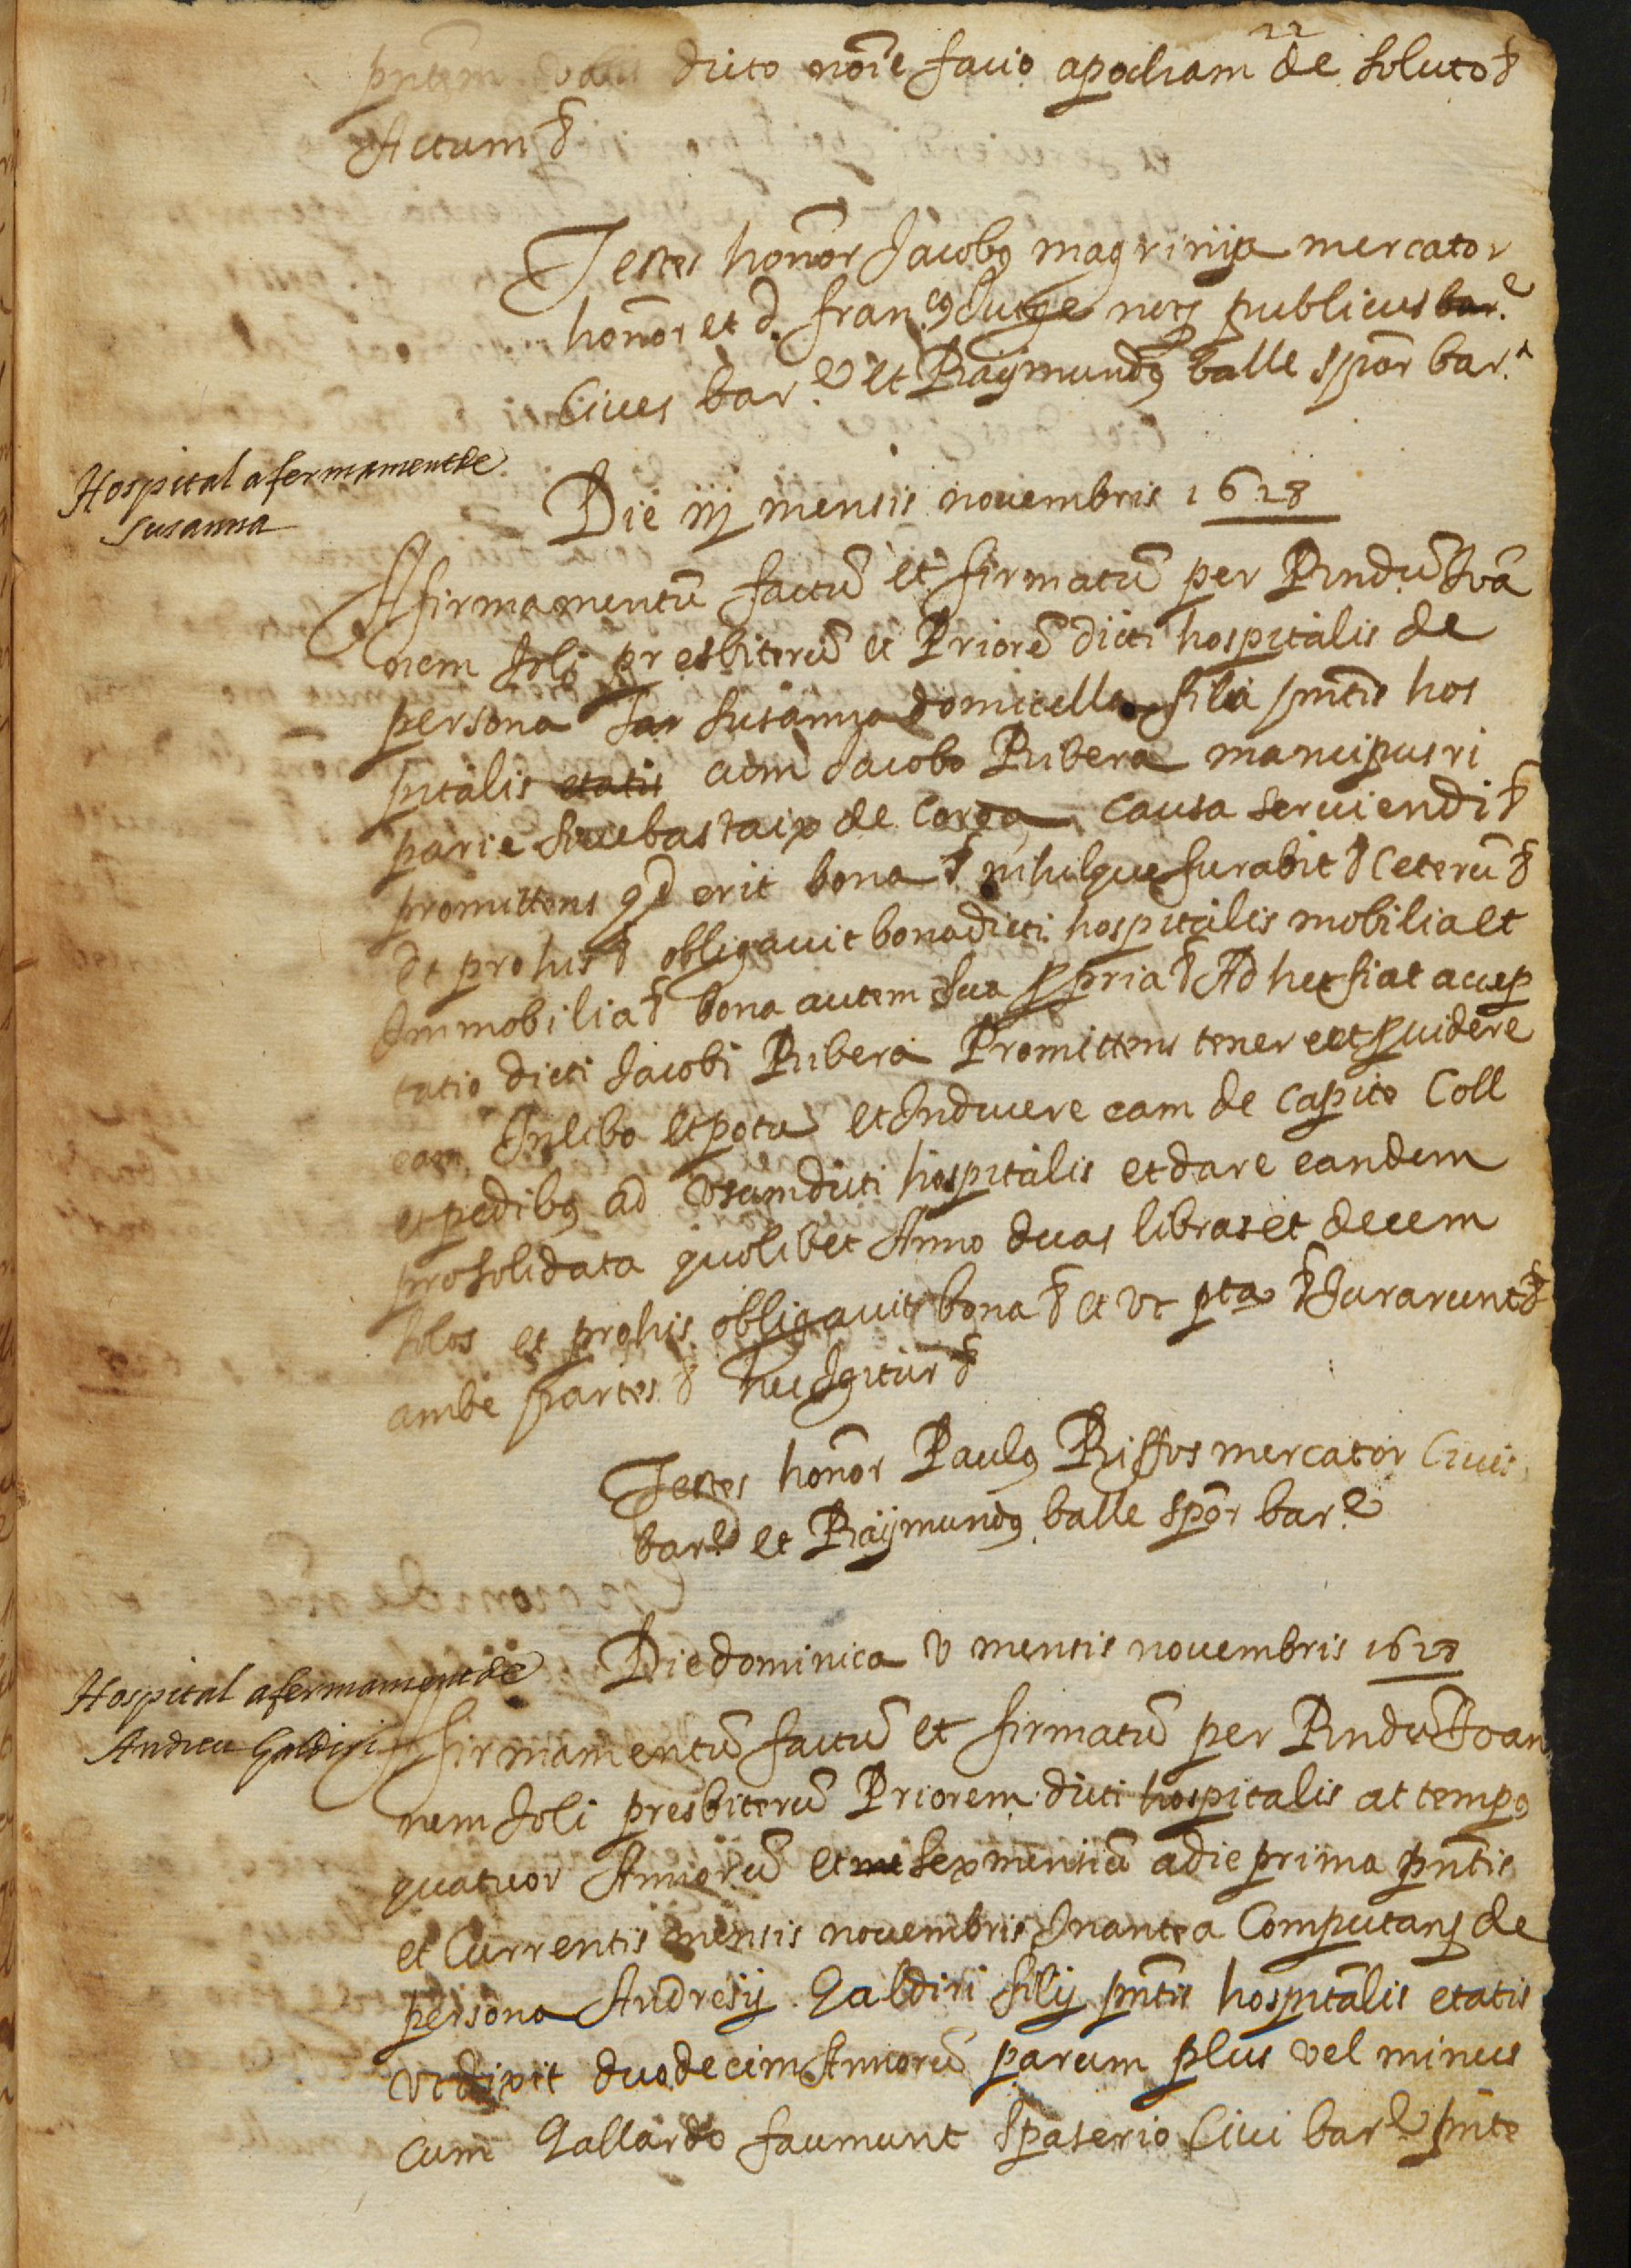 22
pñtem vobis dicto noīe facio apocham de soluto &
Actum &
Testes honor̃ Jacobꝰ magrinya mercator
honor̃ et d. fran.cꝰ Jutge notꝰ publicus bar.e
Cives bar.e et Raymundꝰ balle spōr bar.e
Hospital afermament de
Susanna
Die iij mensis novembris 1628
Afirmamentū factū et firmatū per Rndū Joā
nem Joli presbiterū et Priorē dicti hospitalis de
persona Susanna domicella filia pñtis hos
pitalis etatis cum Jacobo Ribera mancipus ri
parie sive bastaix de Corda causa serviendi &
promittens qd erit bona & nihilque furabit & Ceterū &
Et pro his & obligavit bona dicti hospitalis mobilia et
Immobilia & bona autem sua ꝓpria & Ad hec fiat accep
tatio dicti Jacobi Ribera Promittens tenere et ꝓvidere
eam In cibo et potu et Induere eam de capite Coll
et pedibꝰ ad Usum dicti hospitalis et dare eandem
pro solidata quolibet Anno duas libras et decem
solos et pro his obligavit bona & et Ut pta & Jurarunt &
ambe partes & hec Igitur &
Testes honor̃ Paulꝰ Riffos mercator Civis
bar.e et Raymundꝰ balle spōr bar.e
Die dominica v mensis novembris 1628
Hospital afermament de
Andreu Galdiri
Afirmamentū factū et firmatū per Rndū Joan
nem Joli presbiterū Priorem dicti hospitalis at tempꝰ
quatuor Annorū et me sex mensiū a die prima pñtis
et Currentis mensis novembris In antea Computanꝰ de
persona Andresij Galdiri filij pñtis hospitālis etatis
Ut dixit duodecim Annorū parum plus vel minus
cum Gallardo faumunt spaserio Civi bar.e pñte